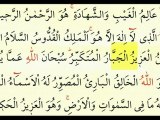 عَالِمُ الْغَيْبِ وَالشَّهَادَةِ هُوَ الرَّحْمَنُ الرَّحِيمُ
الَّذِي لَا إِلَهَ إِلَّا هُوَ الْمَلِكُ الْقُدُّوسُ السَّلَامُ
الْعَزِيزُ الْجَبَّارُ الْمُتَكَبِّرُ سُبْحَانَ اللَّهِ عَمَّا
اللَّهُ الْخَالِقُ الْبَارِئُ الْمُصَوِّرُ لَهُ الْأَسْمَاءُ
مَا فِي السَّمَوَاتِ وَالْأَرْضِ وَهُوَ الْعَزِيزُ